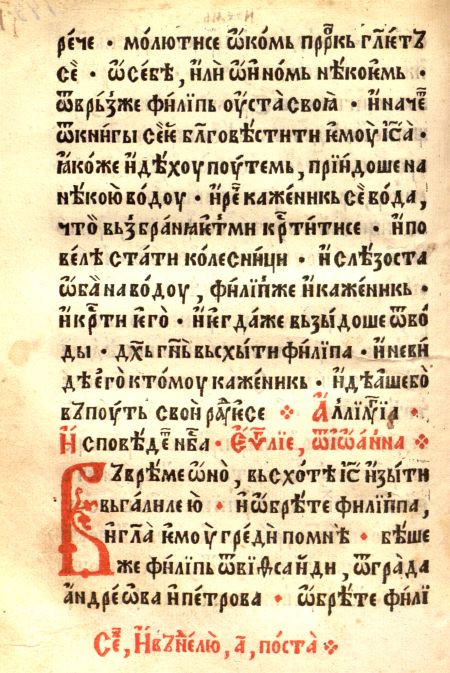 рече · молютисе ѡкомь прⷪ҇ркь гл҃ѥть
се · ѡсебѣ, или ѡиномь нѣкоѥмь ·
ѿврьзже филипь оуста своꙗ · и наче҇
ѿкнигы сеѥ бл҃говѣстити ѥмоу іс҃а ·
ꙗкоже идѣхоу поутемь, прїидоше на
нѣкою водоу · и рече҇ каженикь се вода,
что вьзбранꙗѥтми кр҇титисе · и по
велѣ стати колесници · и слѣзоста
ѡба на водоу, филипже и каженикь ·
и кр҇ти ѥго · и ѥгдаже вьзыдоше ѿво
ды · дх҃ь гн҃ь вьсхыти филипа · и неви
дѣ его ктомоу каженикь · идѣашебо
вь поуть свои раⷣуѥсе ⁘ Аллилꙋїа ·
Исповѣдеⷮ нб҃са · Еѵ҃лїе, ѿ іѡанна ⁘
Вь врѣме ѡно, вьсхотѣ іс҃ изыти
вь галилею · и ѡбрѣте филиппа,
и гл҃а ѥмоу греди по мнѣ · бѣше
же филипь ѿ виѳсаиди, ѿ града
андреѡва и петрова · ѡбрѣте фили
Сеⷣ, И вь неⷣлю, а҃, поста ⁘